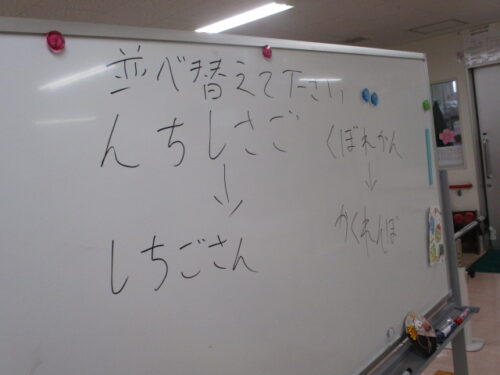 並べ替えて下さい
んちしさご
↓
しちごさん
くぼれかん
↓
かくれんぼ